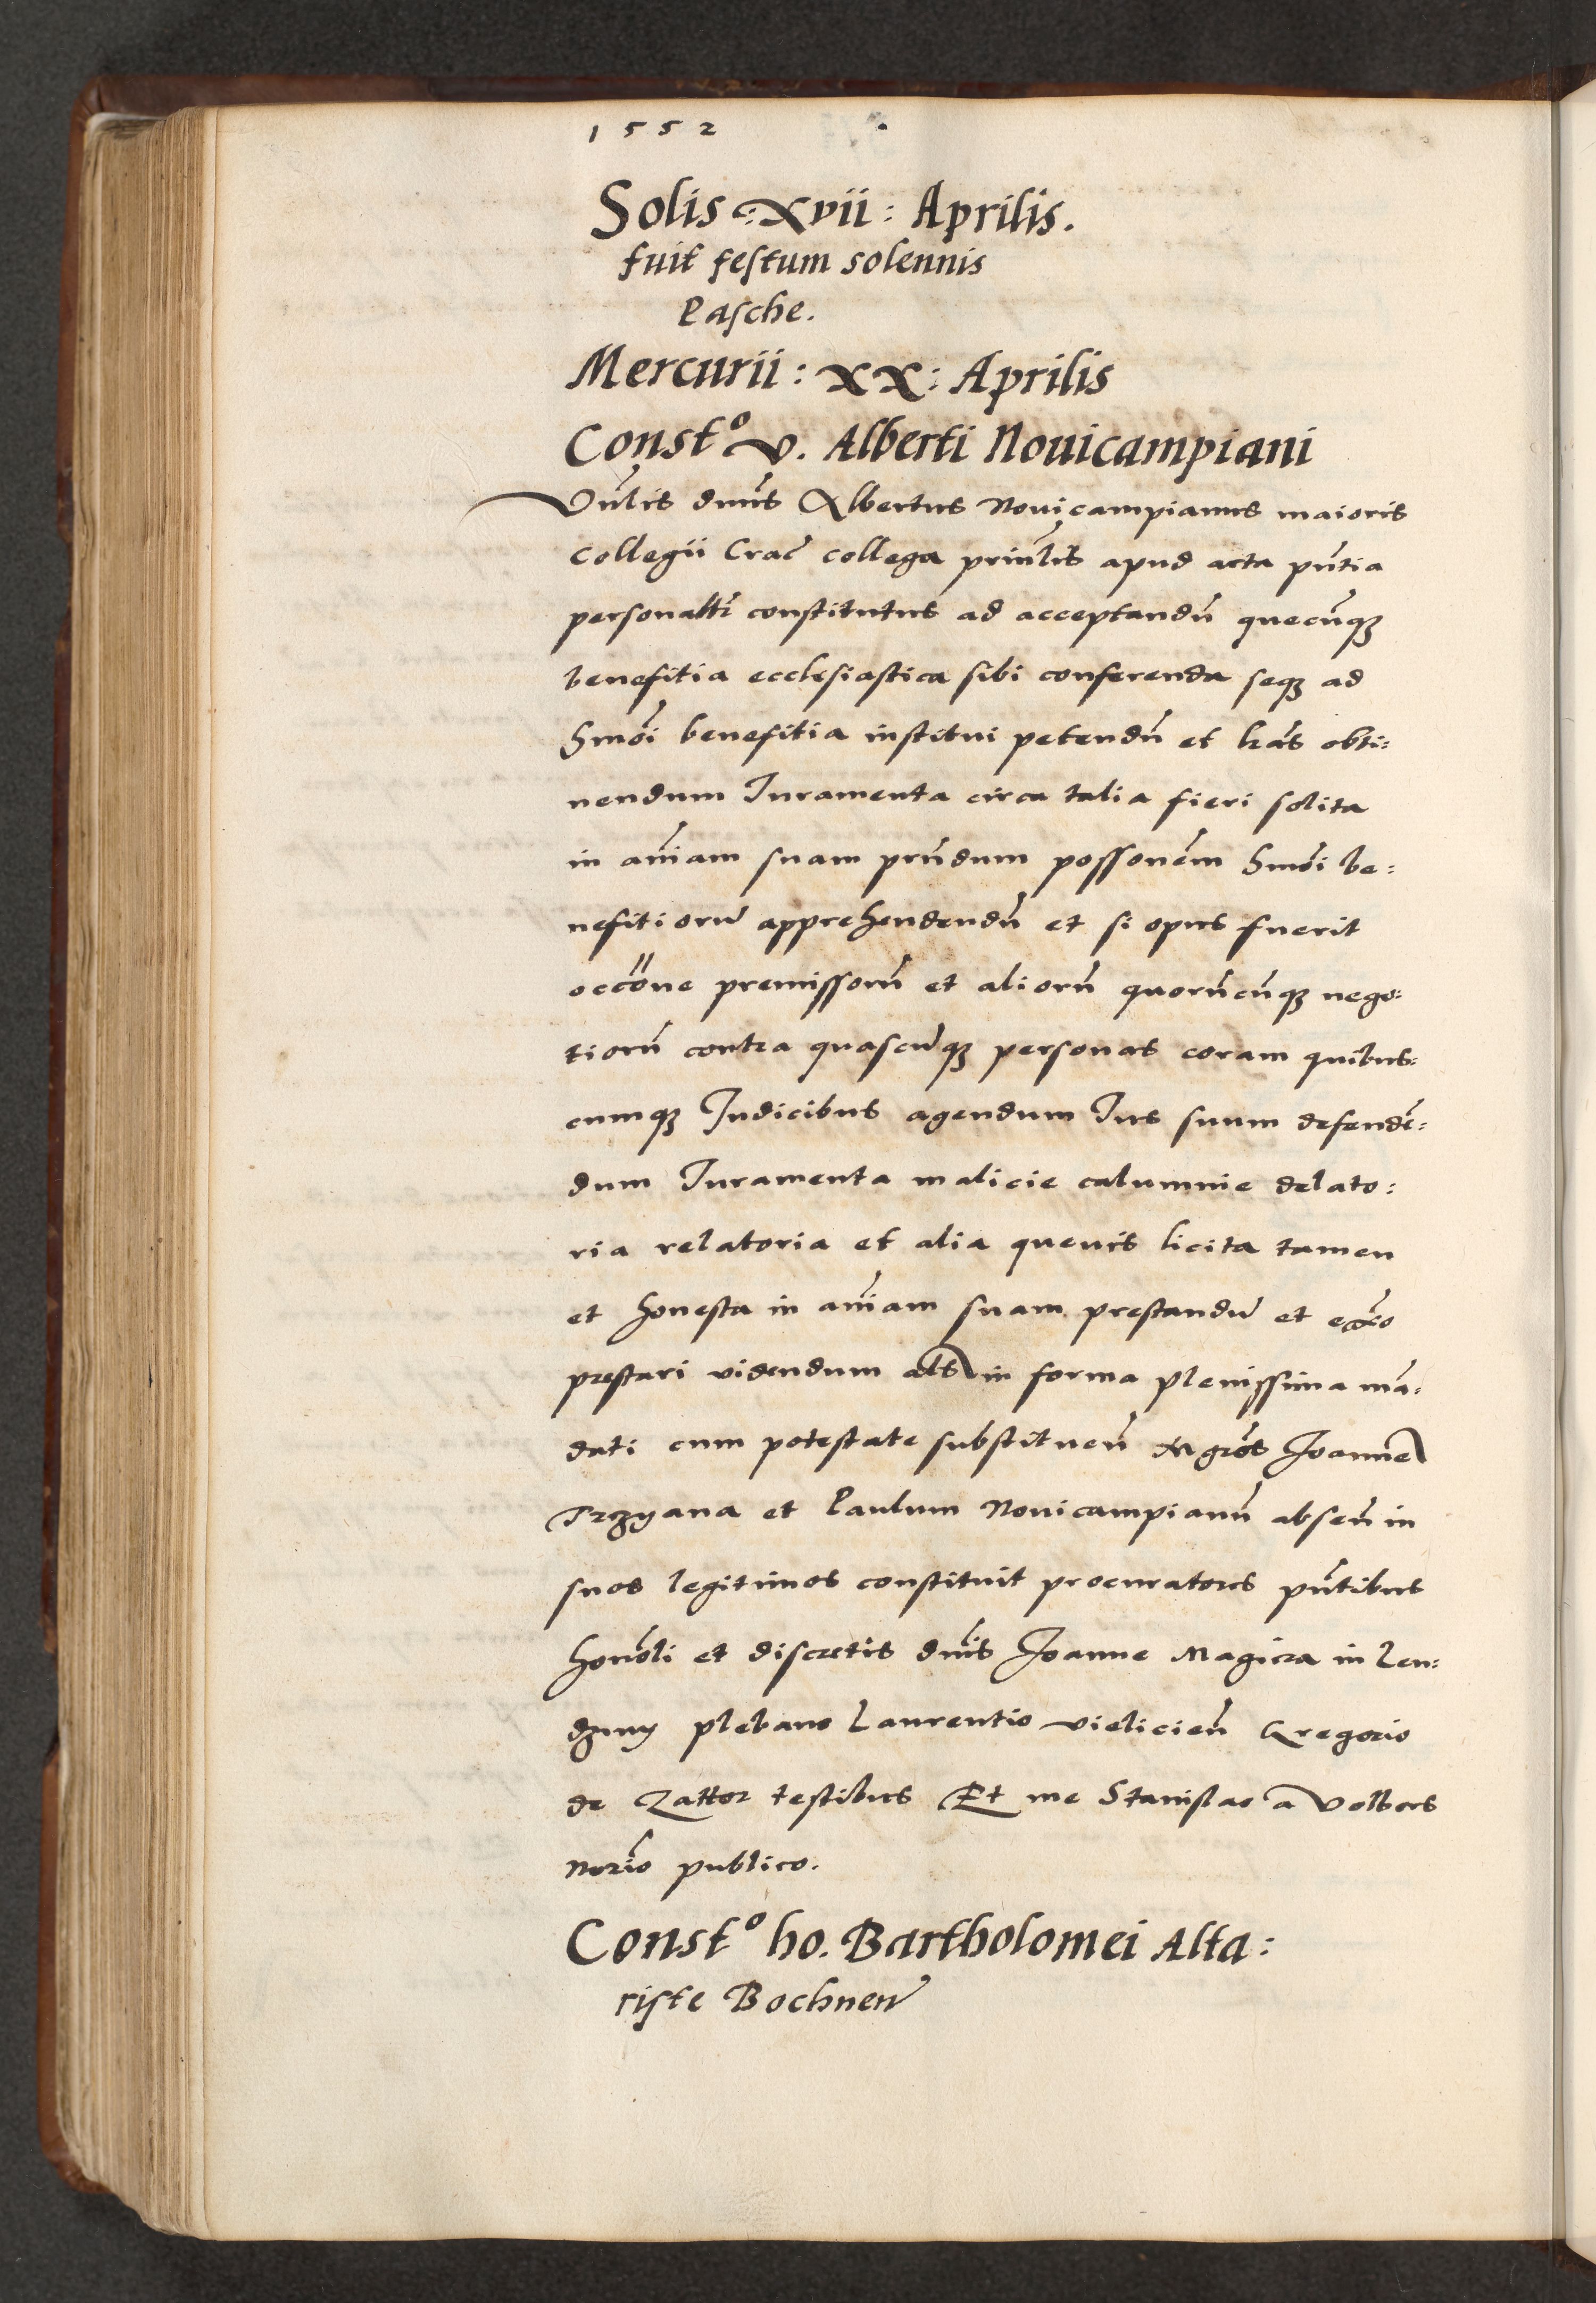 1552
Solis : xvii : Aprilis.
fuit festum solennis
Pasche.
Mercurii : xx : Aprilis
Constº v. Alberti Nouicampiani
Vnlis dnus Albertus Nouicampianus maioris
Collegii Crac collega prinlis apud acta pntia
personaltr constitutus ad acceptandū quecūqz
benefitia ecclesiastica sibi conferenda seqz ad
hmōi benefitia institui petendū et lras obti=
nendum Iuramenta circa talia fieri solita
in aniam suam prndum possonem hmōi be=
nefitiorū apprehendendū et si opus fuerit
occōne premissorū et aliorū quorūcūqz nego=
tiorū contra quascūqz personas coram quibus=
cumqz Iudicibus agendum Ius suum defendē=
dum Iuramenta malicie calumnie delato=
ria relatoria et alia queuis licita tamen
et honesta in aniam suam prestandū et exo
prestari videndum als in forma plenissima mā=
dati cum potestate substituen̄ Mgros Joannē
Trzyana et Paulum Nouicampianū absen̄ in
suos legitimos constituit procuratores pntibus
honobli et discretis dnis Joanne Magiera in Len=
dzyny plebano Laurentio Vielicien̄ Gregorio
de Zattor testibus Et me Stanislao a Volbors
Norio publico.
Constº ho. Bartholomei Alta=
riste Bochnen̄